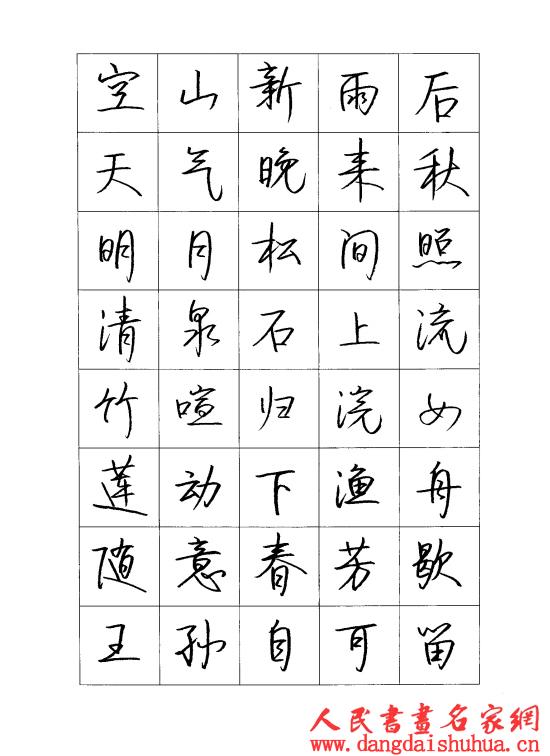 空山新雨后
天气晚来秋
明月松间照
清泉石上流
竹喧归浣女
莲动下渔舟
随意春芳歇
王孙自可留
人民書畫名家網
www.dangdaishuhua.cn